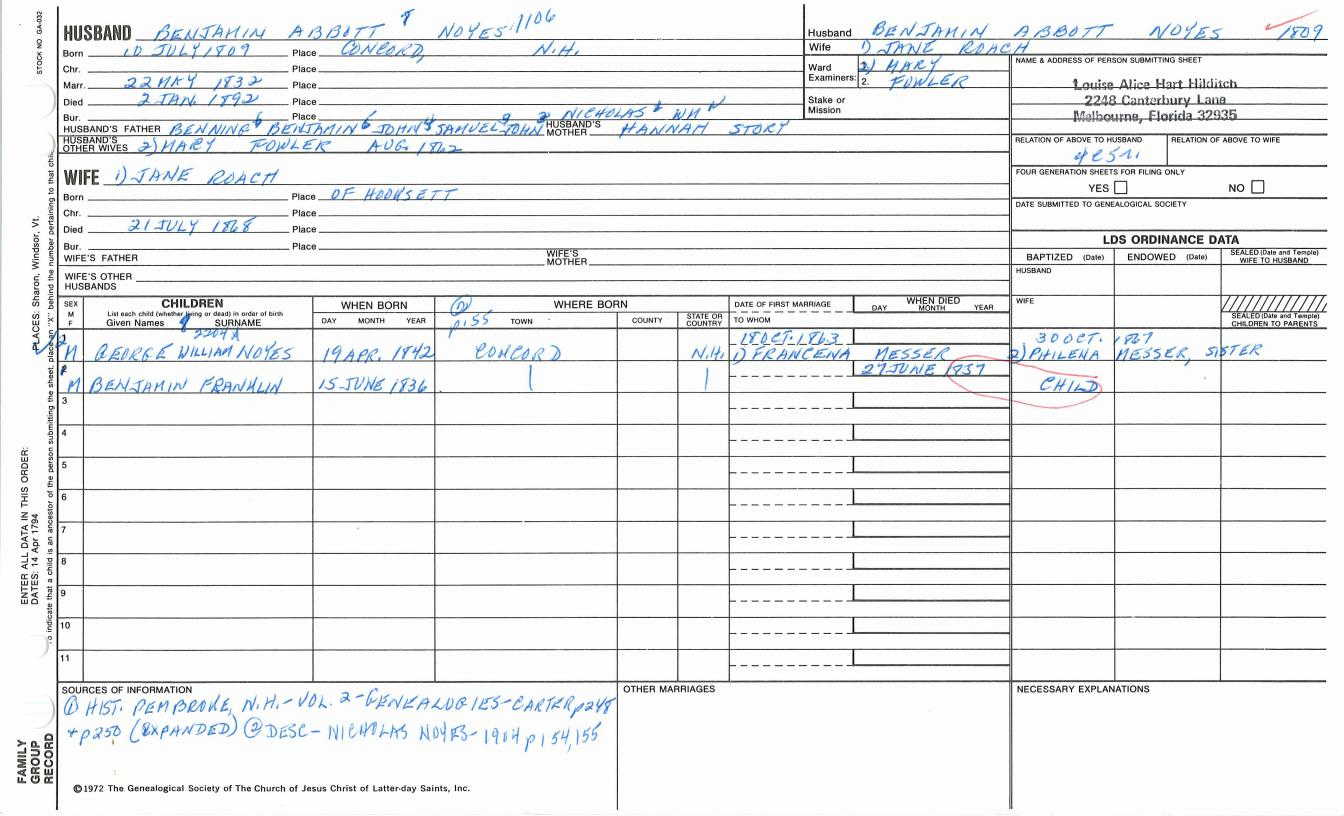 STOCK NO. GA-032
HUSBAND BENJAMIN ABBOTT 8 NOYES 1106
Born 10 JULY 1809 Place CONCORD, N.H.
Chr. Place
Marr. 22 MAY 1832 Place
Died 2 JAN. 1892 Place
Bur. Place
HUSBAND'S FATHER BENNING 6 BENJAMIN 6 JOHN 4 SAMUEL JOHN 2 NICHOLAS WM HUSBAND'S MOTHER HANNAH STORY
HUSBAND'S OTHER WIVES 2) MARY FOWLER AUG. 1862
WIFE 1) JANE ROACH
Born Place OF HOOKSETT
Chr. Place
Died 21 JULY 1868 Place
Bur. Place
WIFE'S FATHER WIFE'S MOTHER
WIFE'S OTHER HUSBANDS
Husband BENJAMIN ABBOTT NOYES 1809
Wife 1) JANE ROACH
Ward Examiners: 2) MARY
2. FOWLER
Stake or Mission
NAME & ADDRESS OF PERSON SUBMITTING SHEET
Louise Alice Hart Hilditch
2248 Canterbury Lane
Melbourne, Florida 32935
RELATION OF ABOVE TO HUSBAND RELATION OF ABOVE TO WIFE
FOUR GENERATION SHEETS FOR FILING ONLY
YES NO
DATE SUBMITTED TO GENEALOGICAL SOCIETY
LDS ORDINANCE DATA
BAPTIZED (Date) ENDOWED (Date) SEALED (Date and Temple) WIFE TO HUSBAND
HUSBAND
WIFE
SEALED (Date and Temple) CHILDREN TO PARENTS
SEX M F CHILDREN WHEN BORN 2 WHERE BORN DATE OF FIRST MARRIAGE WHEN DIED
List each child (whether living or dead) in order of birth
Given Names SURNAME DAY MONTH YEAR p155 TOWN COUNTY STATE OR COUNTRY TO WHOM DAY MONTH YEAR
1 2204A 18 OCT. 1863 30 OCT. 1867
M GEORGE WILLIAM NOYES 19 APR. 1842 CONCORD N.H. 1) FRANCENA MESSER 2) PHILENA MESSER, SISTER
2 27 JUNE 1837
M BENJAMIN FRANKLIN 15 JUNE 1836 CHILD
3
4
5
6
7
8
9
10
11
SOURCES OF INFORMATION
① HIST. PEMBROKE, N.H.-VOL. 2-GENEALOGIES-CARTER p248
+p250 (EXPANDED) ② DESC- NICHOLAS NOYES-1904 p154,155
OTHER MARRIAGES
NECESSARY EXPLANATIONS
©1972 The Genealogical Society of The Church of Jesus Christ of Latter-day Saints, Inc.
ENTER ALL DATA IN THIS ORDER:
DATES: 14 Apr 1794
PLACES: Sharon, Windsor, Vt.
To indicate that a child is an ancestor of the person submitting the sheet, place an "X" behind the number pertaining to that child.
FAMILY GROUP RECORD